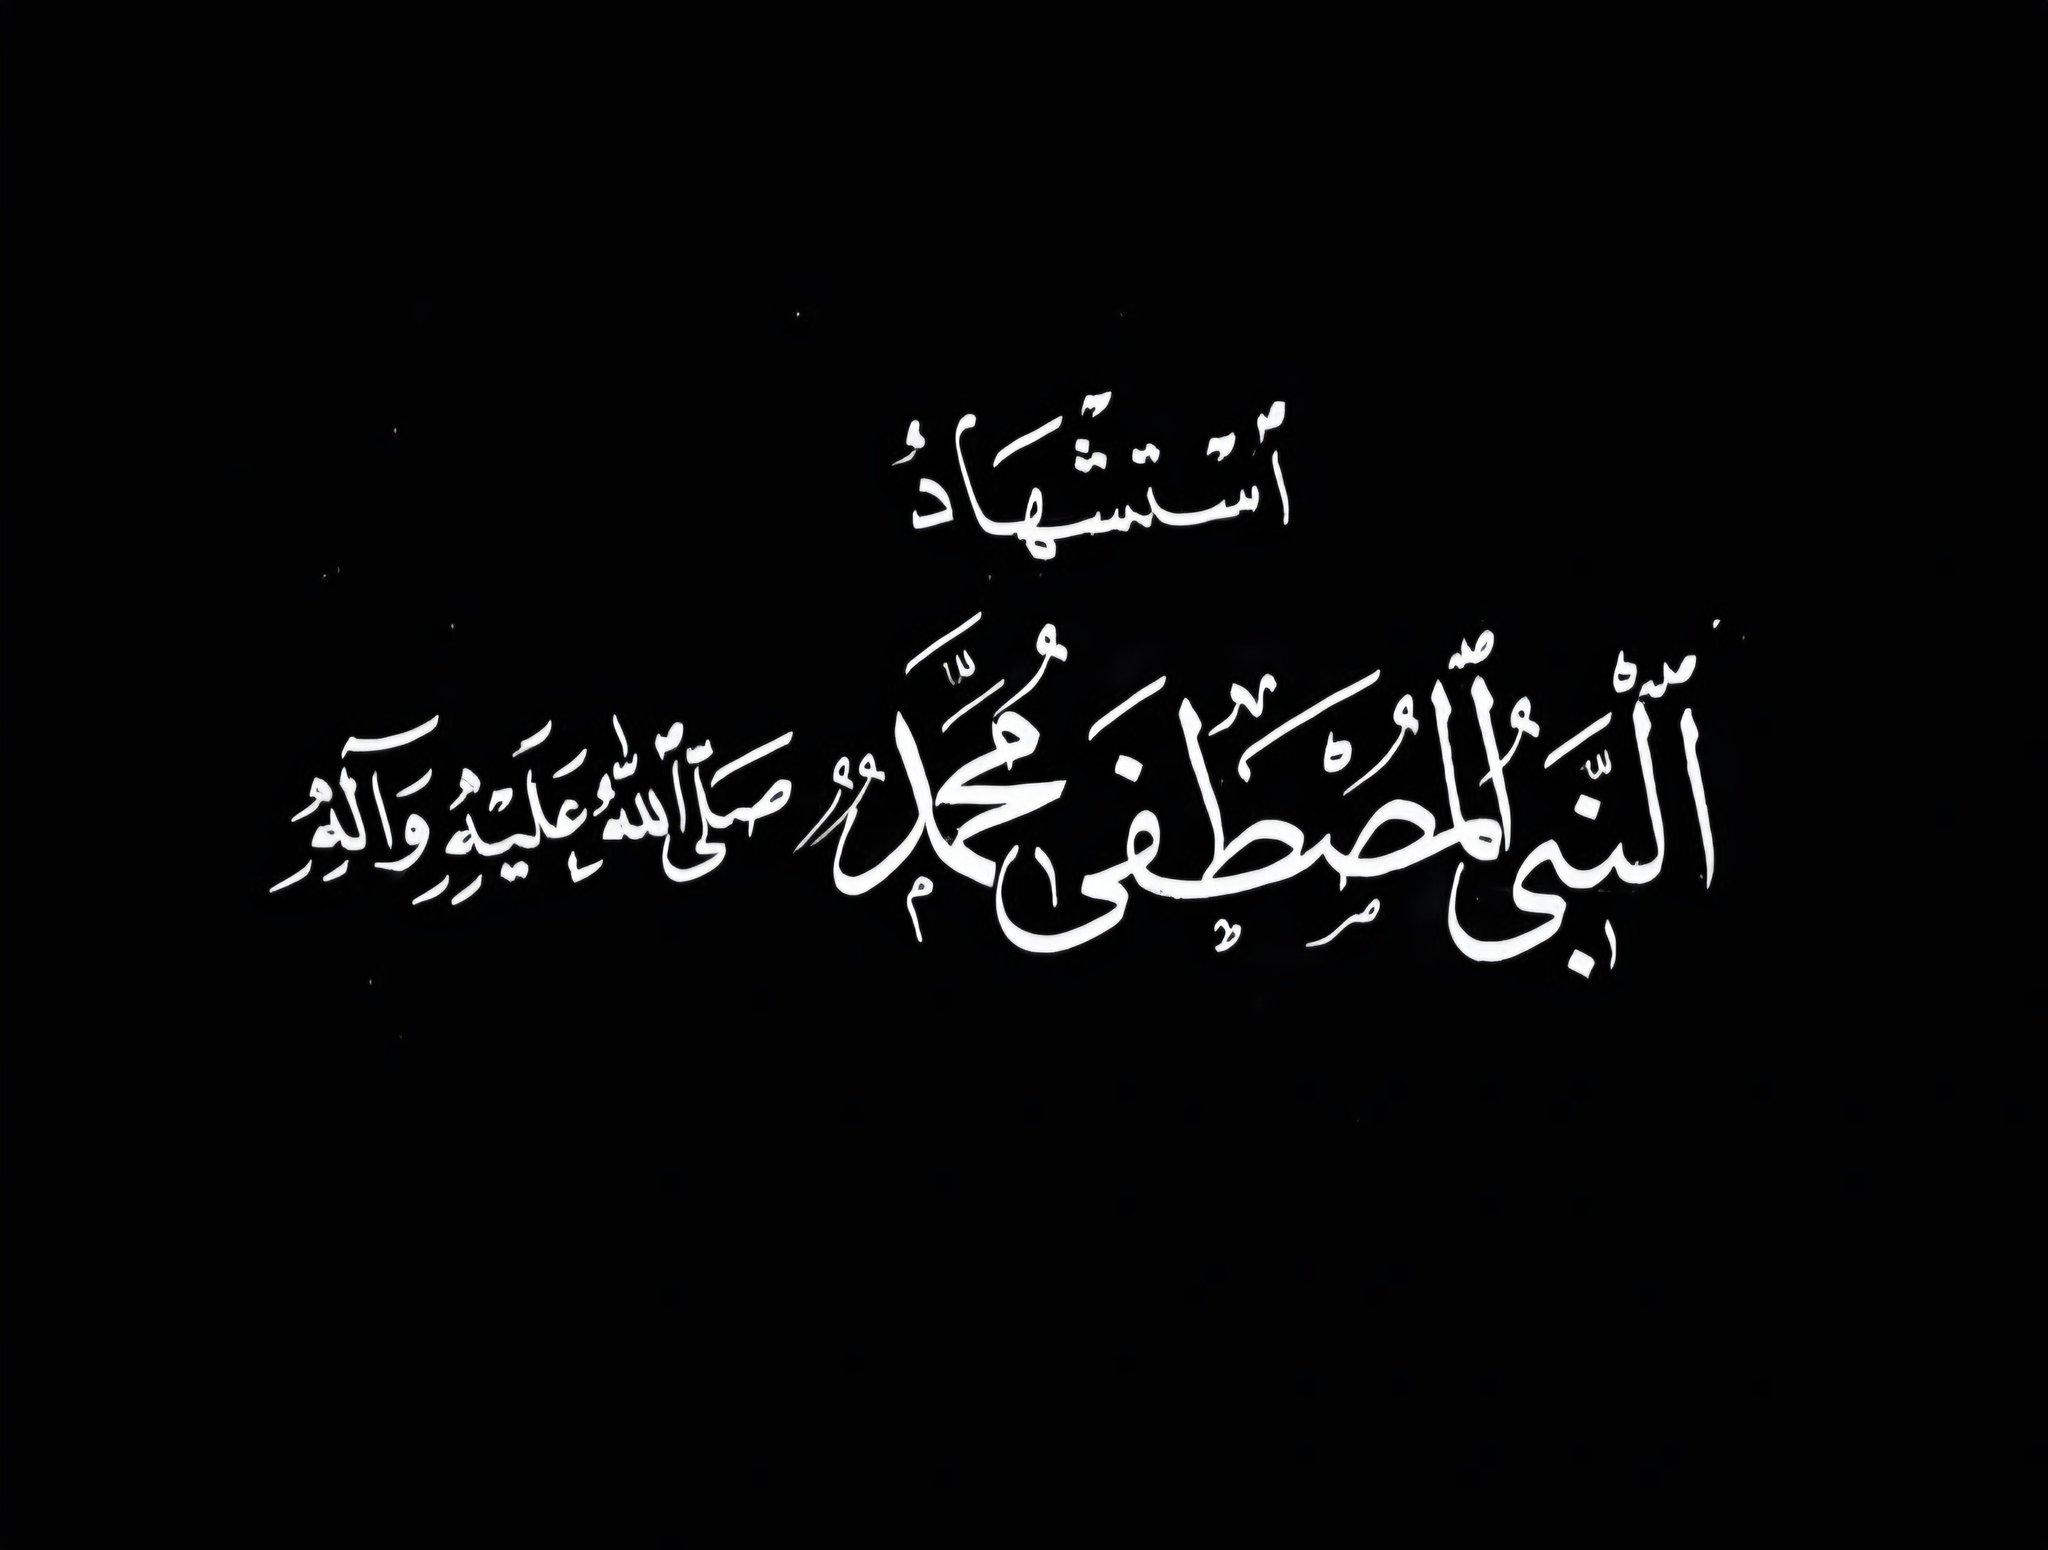 ٱسْتِشْهَادُ
ٱلنَّبِيُّ ٱلْمُصْطَفَى مُحَمَّدٌ صَلَّى ٱللَّهُ عَلَيْهِ وَآلِهِ